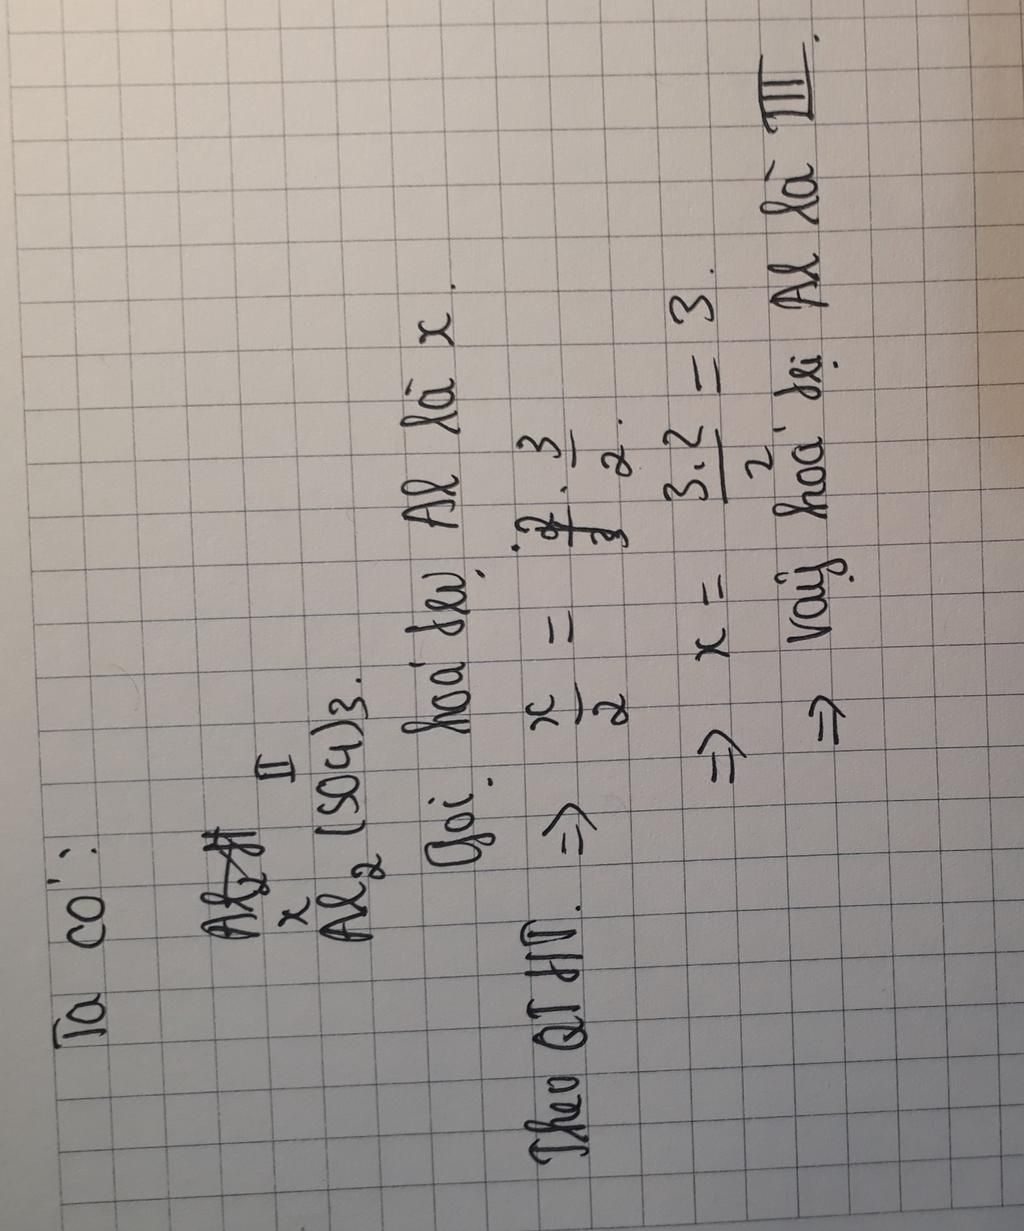 Ta có:
x II
Al2 (SO4)3.
Gọi hoá trị Al là x.
Theo QT HT. => x/2 = 3/2.
=> x = 3.2/2 = 3.
=> Vậy hoá trị Al là III.